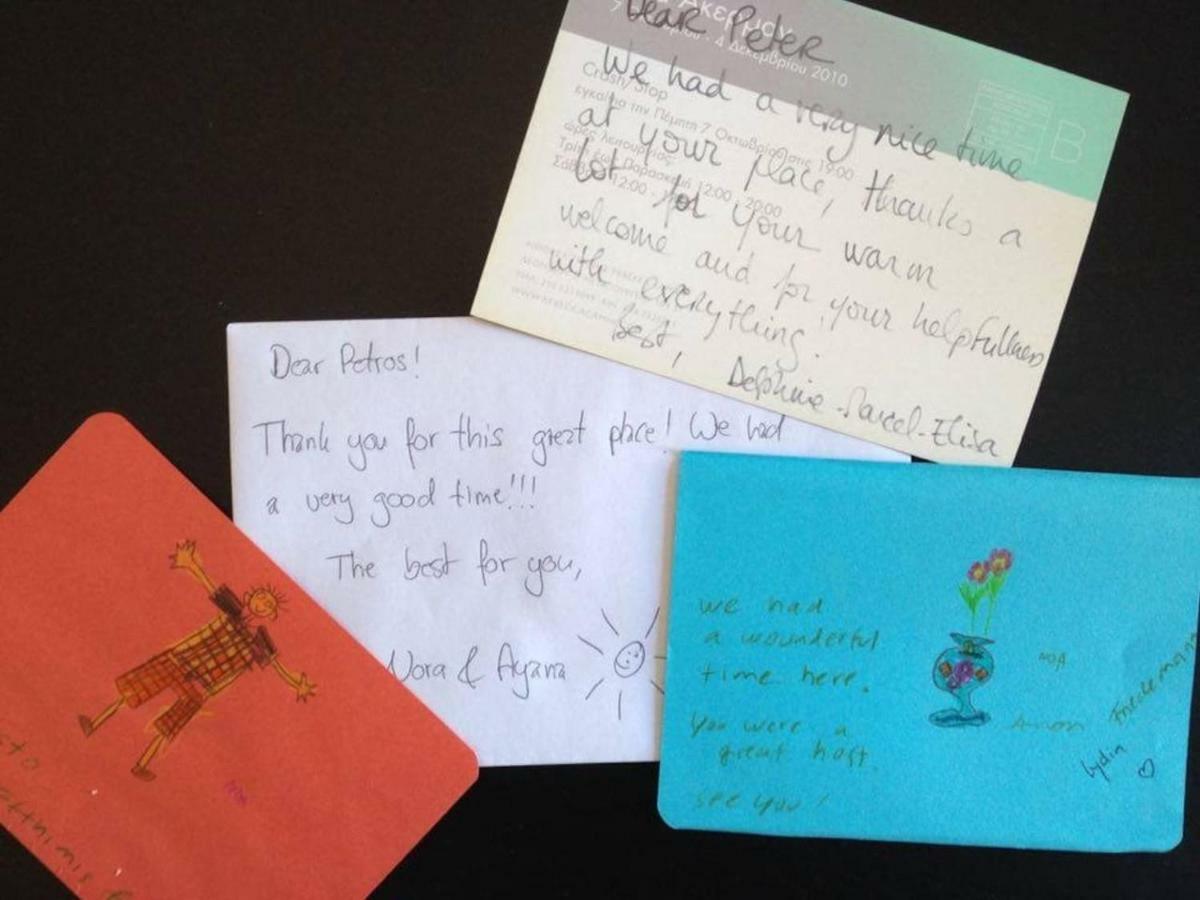 Dear Peter
We had a very nice time
at your place, thanks a
lot for your warm
welcome and for your helpfullness
with everything!
Best,
Delphine-Marcel-Elisa
4 Δεκεμβρίου 2010
Crash/Stop
εγκαίνια την Πέμπτη 7 Οκτωβρίου στις 19:00
ώρες λειτουργίας:
Τρίτη έως Παρασκευή 12:00 - 20:00
Σάββατο 12:00 -
B
Dear Petros!
Thank you for this great place! We had
a very good time!!!
The best for you,
Nora & Ayana
we had
a wounderful
time here.
You were a
great host.
see you!
NOA
Amon
Lydia
sto